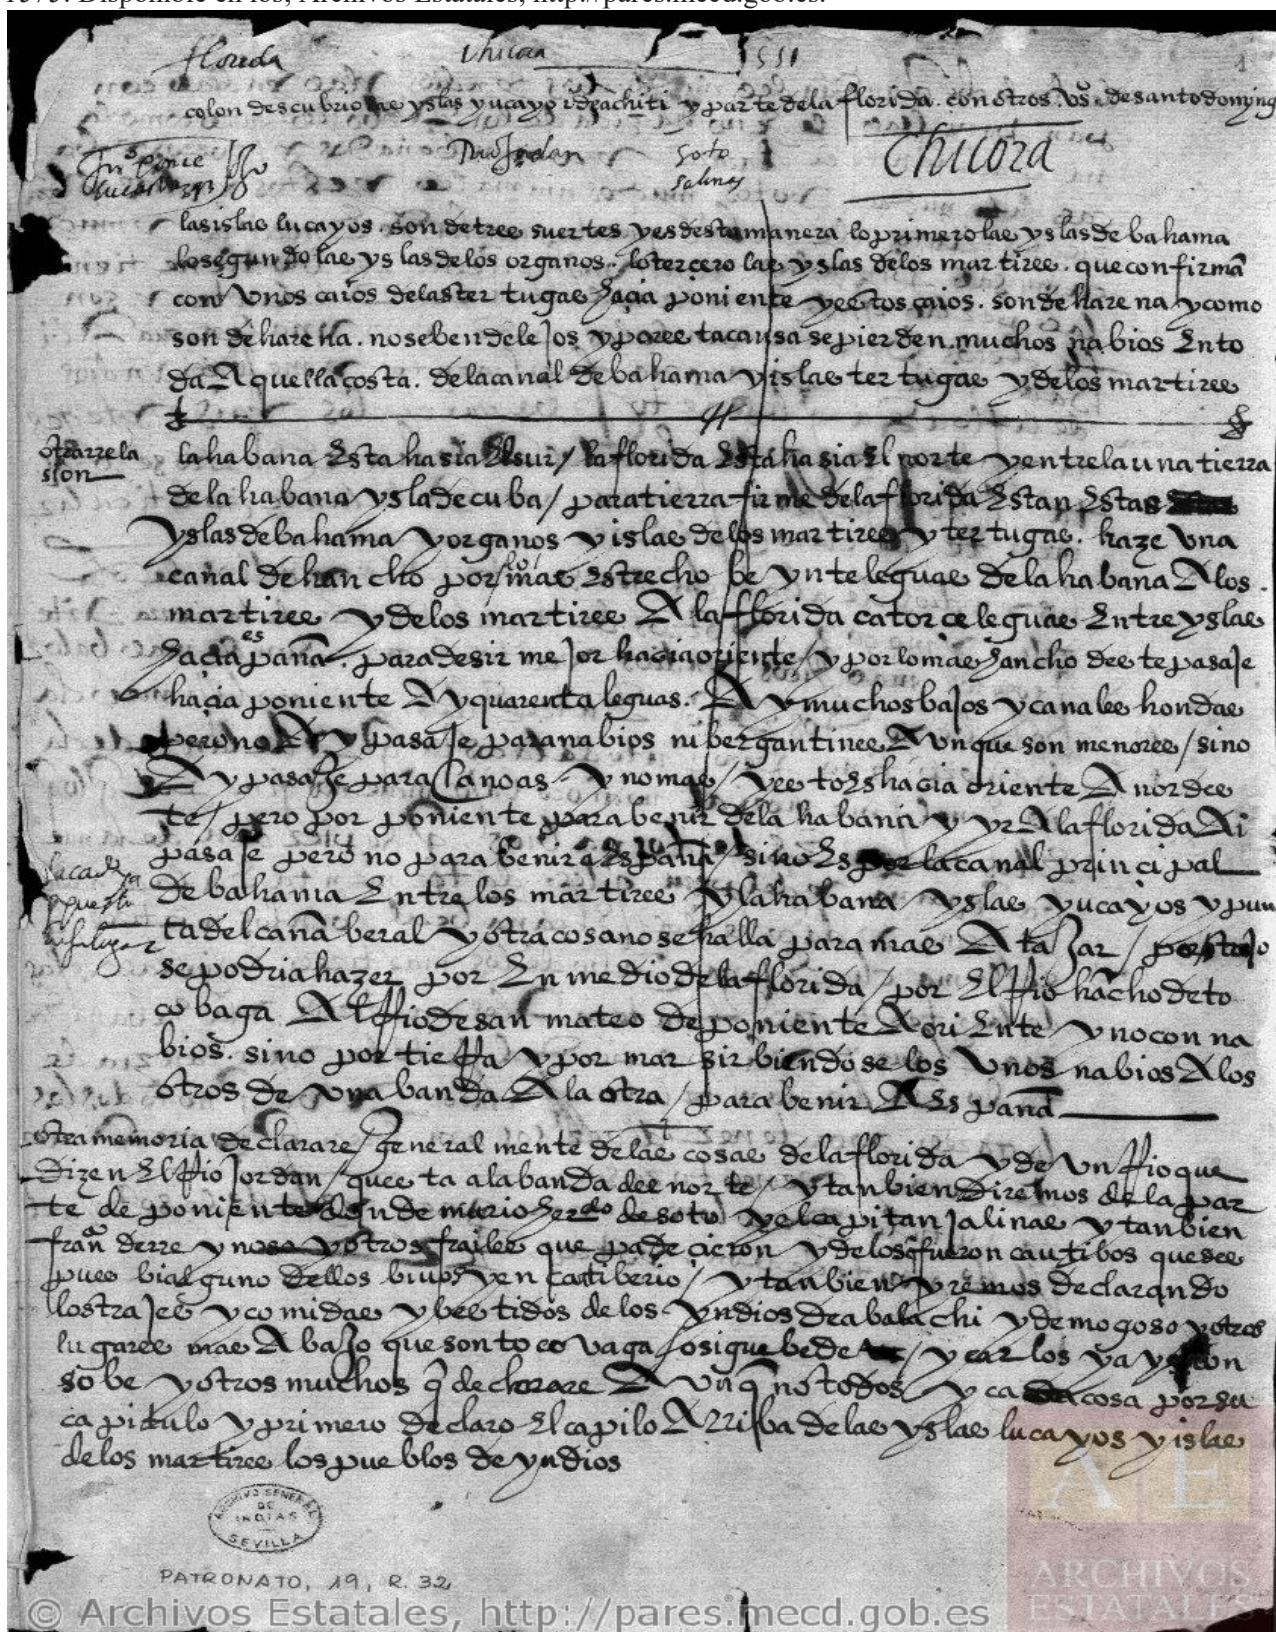 1575. Disponible en los, Archivos Estatales, http://pares.mecd.gob.es.
florida Chicora
1
colon descubrio lae yslas yucayo i de achiti y parte de la florida. con otros vos. de santo doming
Juo ponce
soto
salinas
Chicora
las islae lucayos. son de tree suertes yes desta manera lo primero lae yslas de bahama
lo segundo lae yslas de los organos. lo tercero lae yslas de los martiree. que confirmã
con unos caios de las tertugae hacia poniente yeestos caios. son de harena y como
son de harena. no se ben de lejos y por eeta causa se pierden muchos nabios Ento
da Aquella costa. de la canal de bahama y islae tertugae y de los martiree
otrarrela
sion
la habana Esta hasia El sur / la florida Esta hasia El norte y entre la una tierra
de la habana ysla de cuba / para tierra firme de la florida Estan Estas
yslas de bahama y organos y islae de los martiree y tertugae. haze una
canal de hancho por lo mae Estrecho beynte leguae de la habana A los
martiree y de los martiree A la florida catorce leguae Entre yslae
hacia españa. para desir mejor hacia oriente / y por lo mae hancho deete pasaje
hacia poniente Ay quarenta leguas. Ay muchos bajos y canalee hondae
pero no Ay pasaje para nabios ni bergantinee Aunque son menoree / sino
Ay pasaje para Canoas. y no mae / yeeto Es hacia oriente A nordee
te / pero por poniente para benir de la habana y yr A la florida Ai
pasaje pero no para benir a España / sino Es por la canal principal
de bahama Entre los martiree y la habana yslae yucayos y pun
ta del cañaberal y otra cosa no se halla para mae Atajar /
se podria hazer por En medio de la florida / por El Rio hãcho de to
cobaga Al Rio de san mateo de poniente A oriEnte y no con na
bios. sino por tieRa y por mar sirbiendose los unos nabios A los
otros de una banda A la otra / para benir A España
otra memoria declarare / general mente de lae cosae de la florida y de un Rio que
Dizen El Rio Jordan / quee ta a la banda dee norte / y tanbien Diremos de la par
te de poniente donde murio herdo de soto y el capitan salinae y tanbien
y otros frailee que padecieron y de los q fueron cautibos que dee
puee bi alguno dellos bivos y en catiberio / y tanbien yremos declarando
los trajee y comidae y beetidos de los yndios de abalachi y de mogoso y otros
lugaree mae Abajo que son tocovaga osiguebede / y carlos ya ys con
sobe y otros muchos q̃ declarare Aunq̃ no todos / y cada cosa por su
capitulo y primero declaro El capilo Arriba de lae yslae lucayos y islae
de los martiree los pueblos de yndios
ARCHIVO GENERAL
DE
INDIAS
SEVILLA
PATRONATO, 19, R. 32
A E
ARCHIVOS
ESTATALES
© Archivos Estatales, http://pares.mecd.gob.es